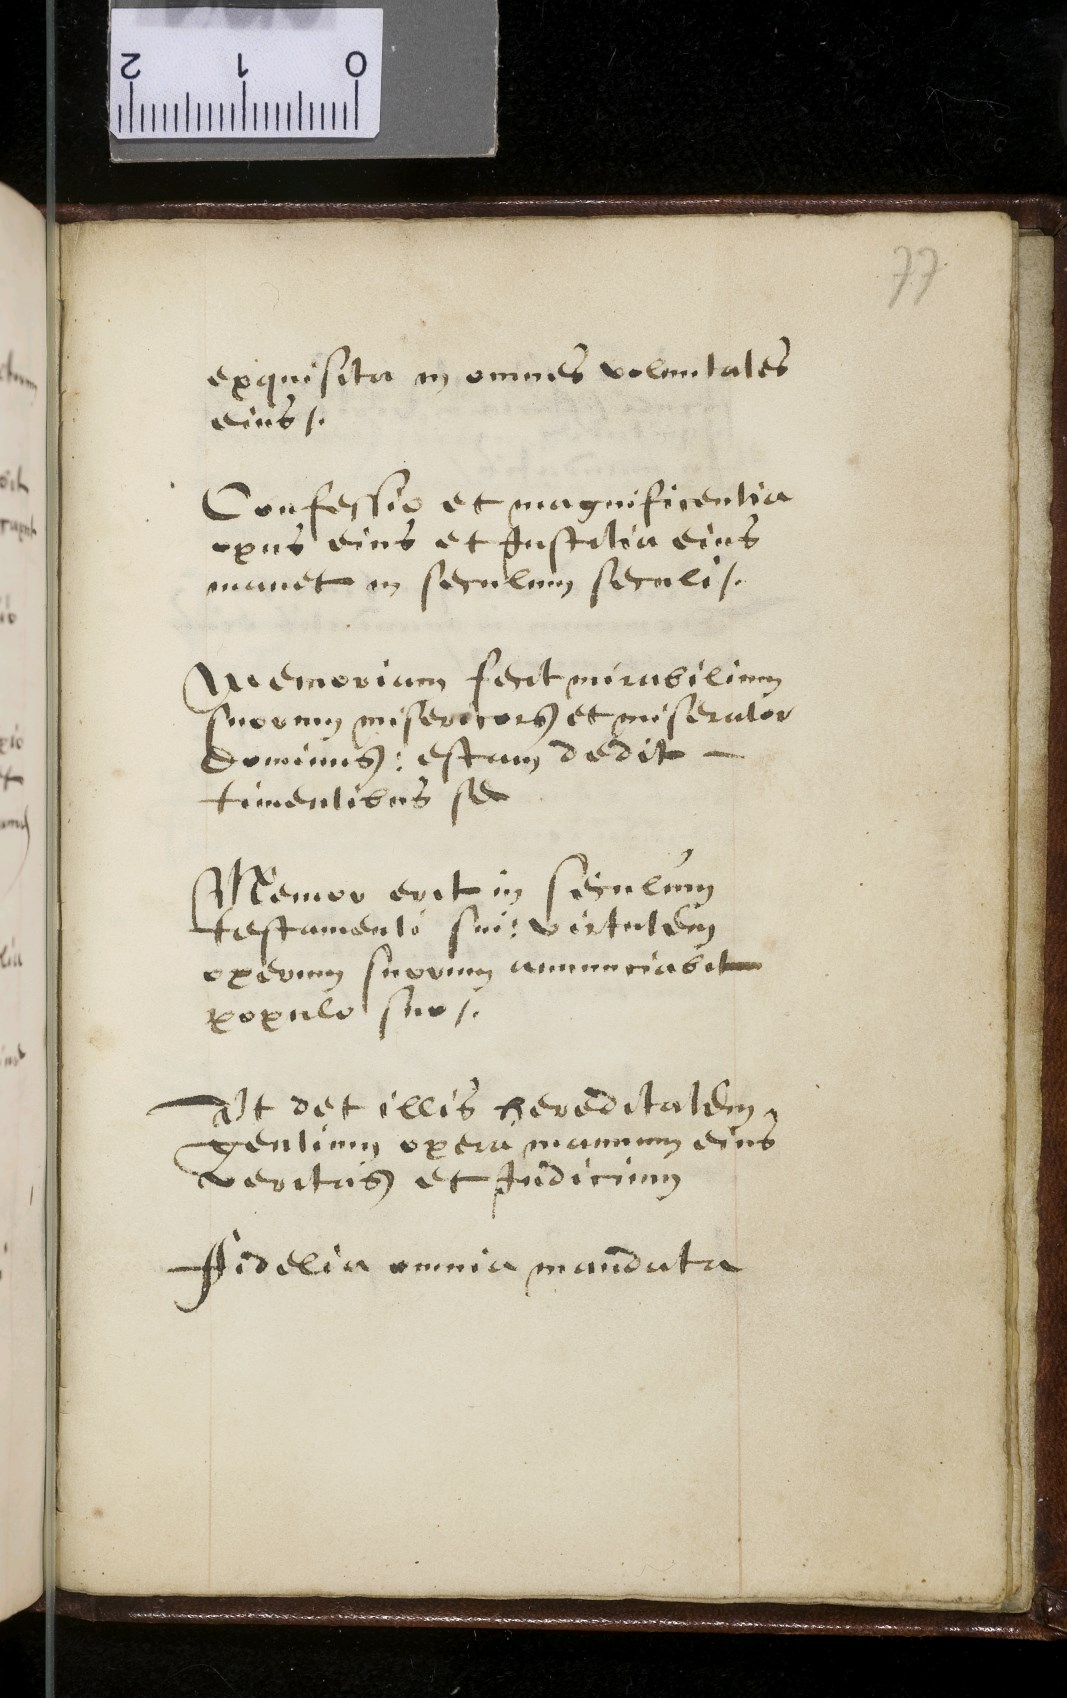 2 1 0
77
exquisita in omnes voluntates
eius /.
Confessio et magnificentia
opus eius et Justitia eius
manet in seculum seculi /.
Memoriam fecit mirabilium
suorum misericors et miserator
dominus : escam dedit -
timentibus se
Memor erit in seculum
testamenti sui : virtutem
operum suorum annunciabit
populo suo /.
Ut det illis hereditatem
gentium opera manuum eius
veritas et Judicium
Fidelia omnia mandata